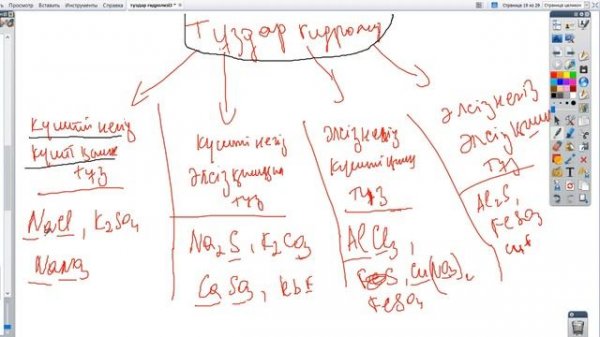 Вид Вставка Инструменты Справка
Страница 19 из 29
Страница целиком
Тұздар гидролиз
Күшті негіз
күшті қышқ
тұз
NaCl, K₂SO₄
NaNO₃
күшті негіз
Әлсіз қышқыл
тұз
Na₂S, K₂CO₃
CaSO₃, RbF
Әлсіз негіз
күшті қышқ
тұз
AlCl₃,
Cu(NO₃)₂
FeSO₄
Әлсіз негіз
Әлсіз қышқ
тұз
Al₂S₃
FeSO₃